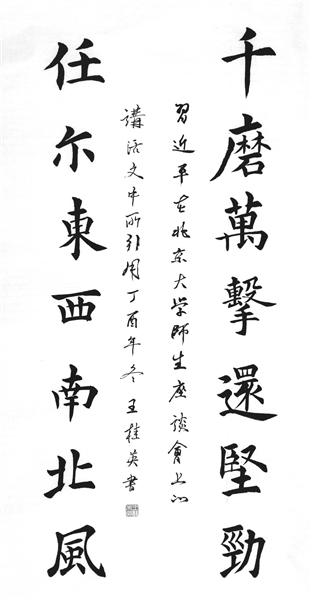 千磨萬擊還堅勁
習近平在北京大学師生座談會上的
講話文中所引用丁酉年冬王桂英書
任尔東西南北風